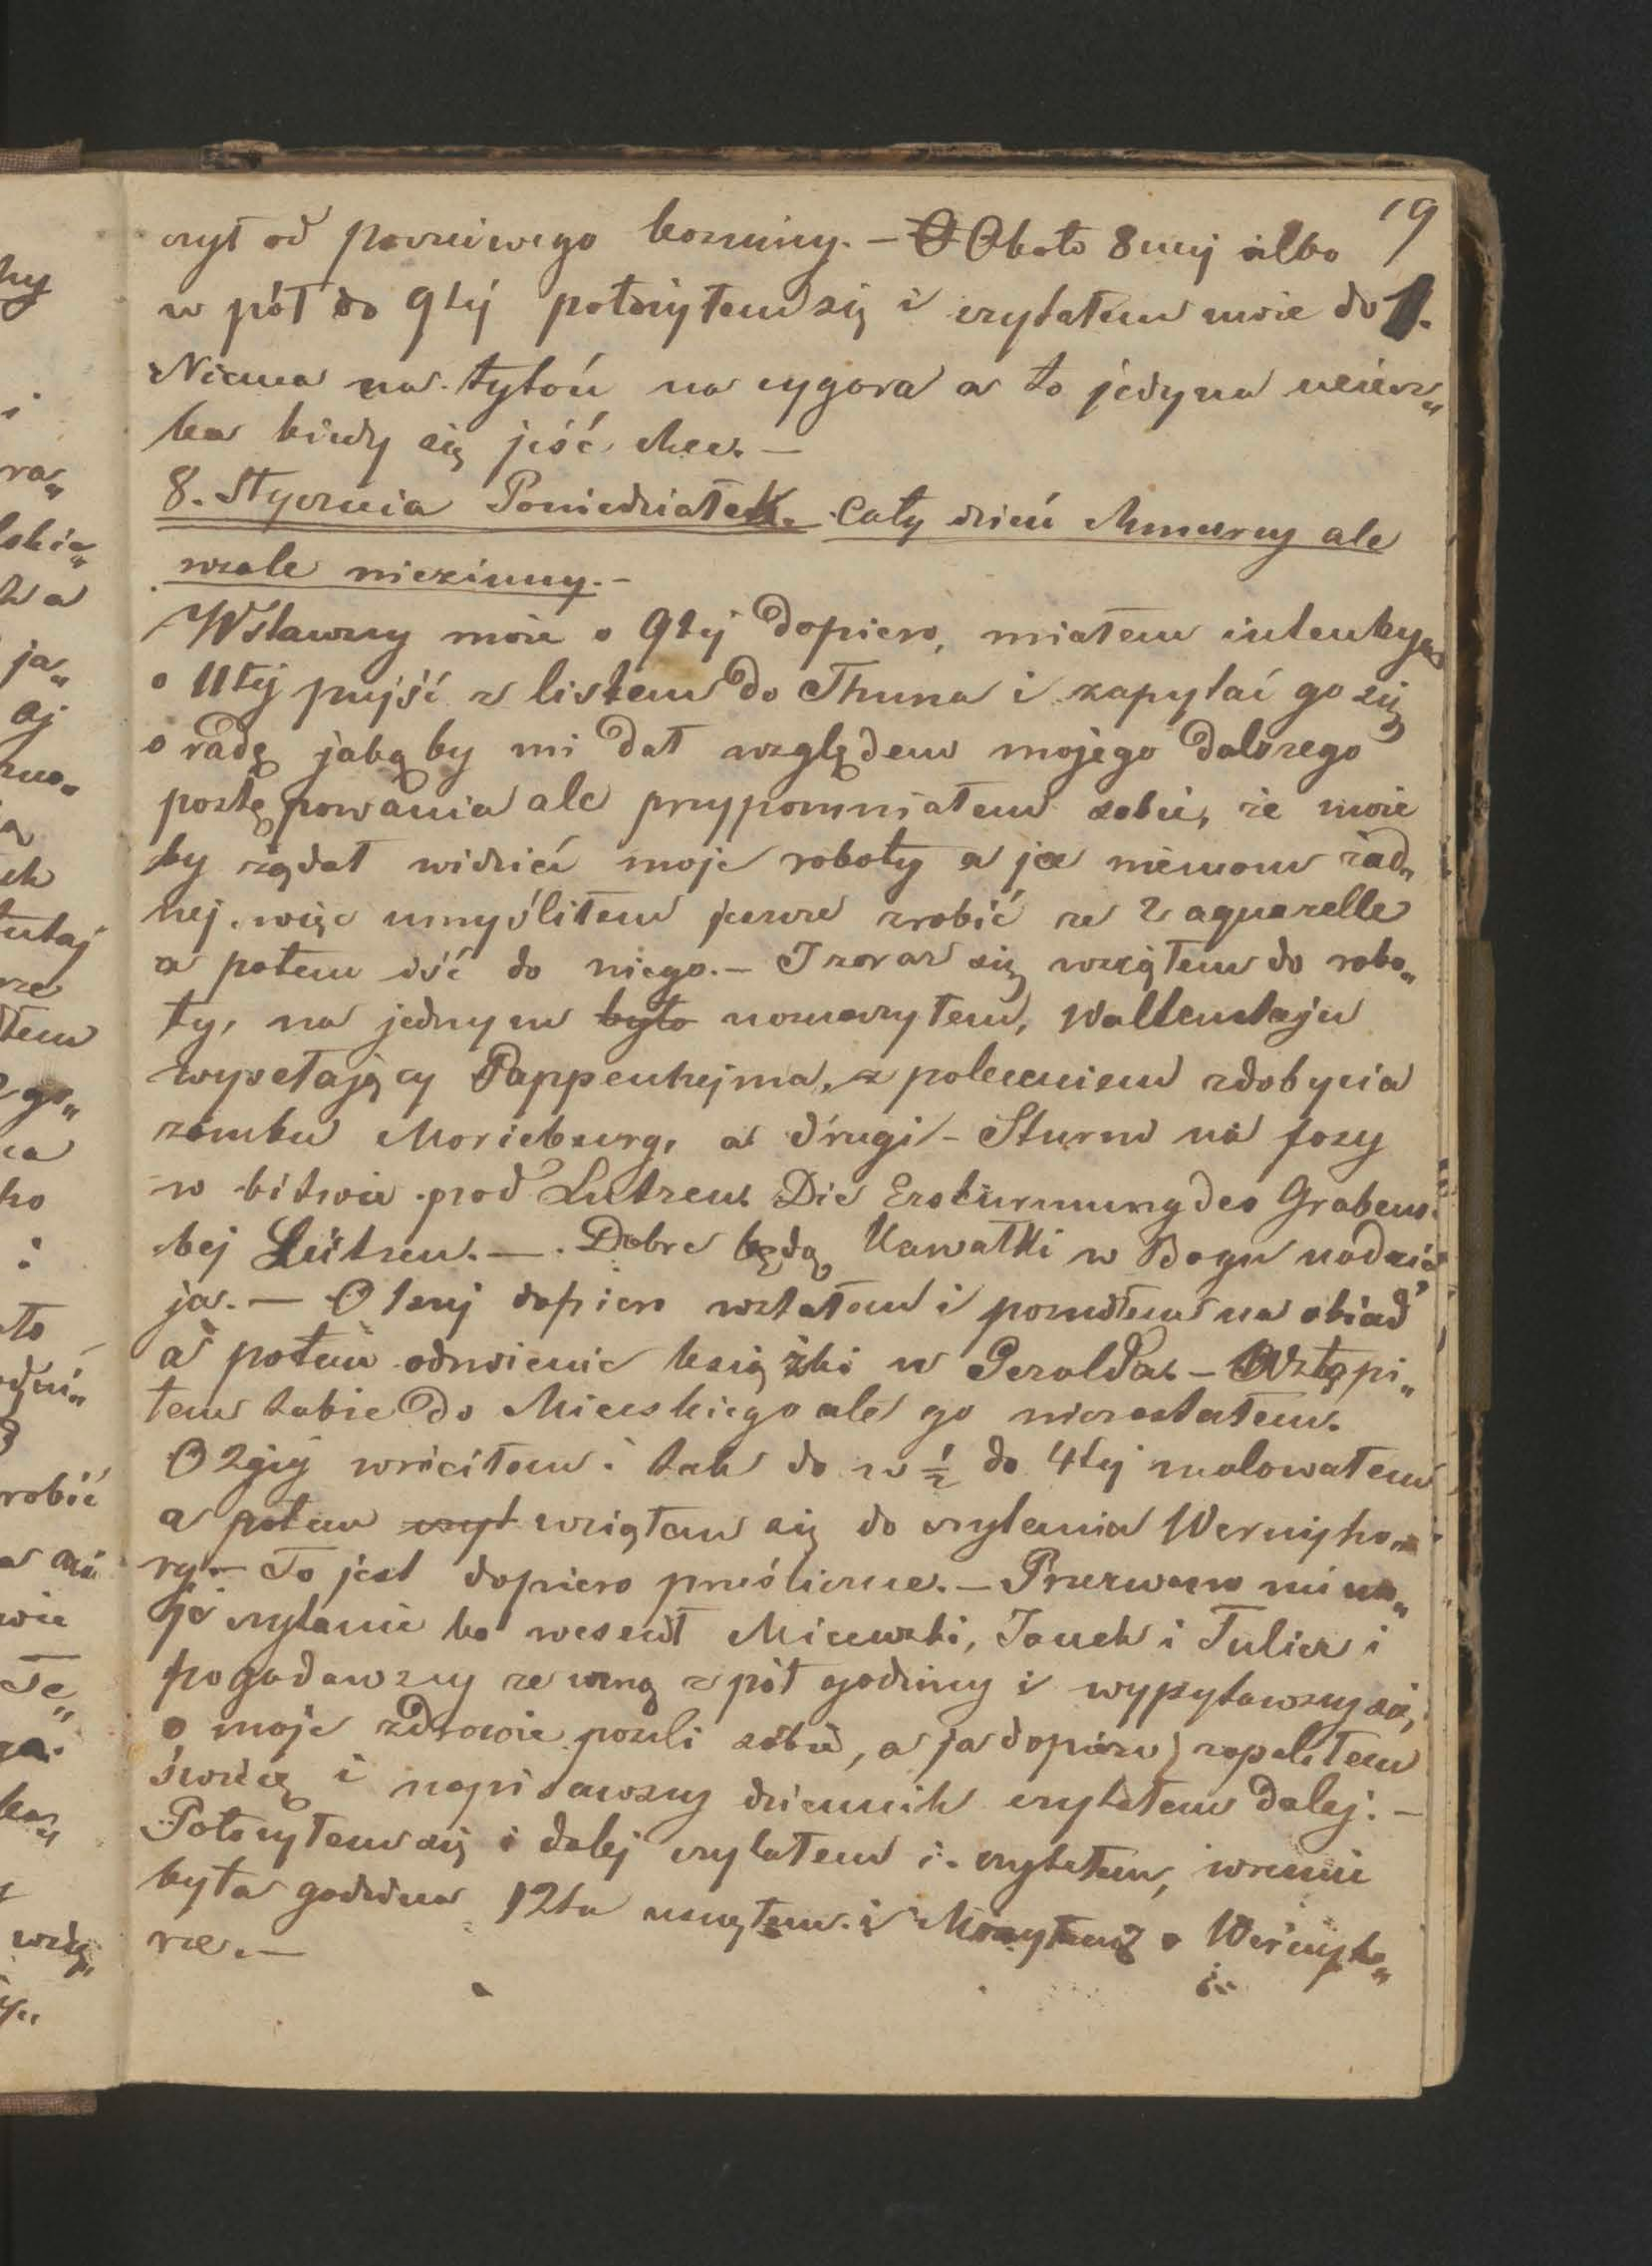 19
czył od poczciwego kozuiny. — O Około 8mij albo
w pół do 9tij położyłem się i czytałem może do 1.
Niema na tytoń na cygara a to jedyna uciesz„
ka kiedy się jeść chce. —
8. Stycznia Poniedziałek. Cały dzień chmurny ale
wcale niezimny. —
Wstawszy może o 9tij dopiero, miałem intenkyą
o 11tej pujść z listem do Thuna i zapytać go się
o radę jaką by mi dał względem mojego dalszego
postępowania ale przypomniałem sobie, że może
by rządał widzieć moje roboty a ja niemam żad„
nej, więc umyśliłem jeszcze zrobić ze 2 aquarelle
a potem iść do niego. — I zaraz się wziąłem do robo„
ty, na jednym było naznaczyłem, Wallenstajn
wysełający Pappenhejma, z poleceniem zdobycia
zamku Moricburg, a drugi — Sturm na fosy
w bitwie pod Lutzen. Die Erstürmung des Grabens
bej Lützen. — Dobre będą Kawałki w Bogu nadzie
ja. — O 1szij dopiero wstałem i poszedłem na obiad
a potem odmienić książki w Gerolda. — Wstąpi„
łem także do Micewskiego ale go niezastałem.
O 2giij wróciłem i tak do w ½ do 4tej malowałem
a potem czyt wziąłem się do czytania Wernyho„
ry. — To jest dopiero prześliczne. — Przerwano mi mo„
je czytanie bo weszedł Micewski, Janek i Julian i
pogadawszy ze mną z pół godziny i wypytawszy się,
o moje zdrowie poszli sobie, a ja dopiero zapaliłem
świecę i napisawszy dziennik czytałem dalej: —
Położyłem się i dalej czytałem i czytałem, wreszcie
była godzina 12ta usnąłem i Marzyłem o Wernyho„
rze. —